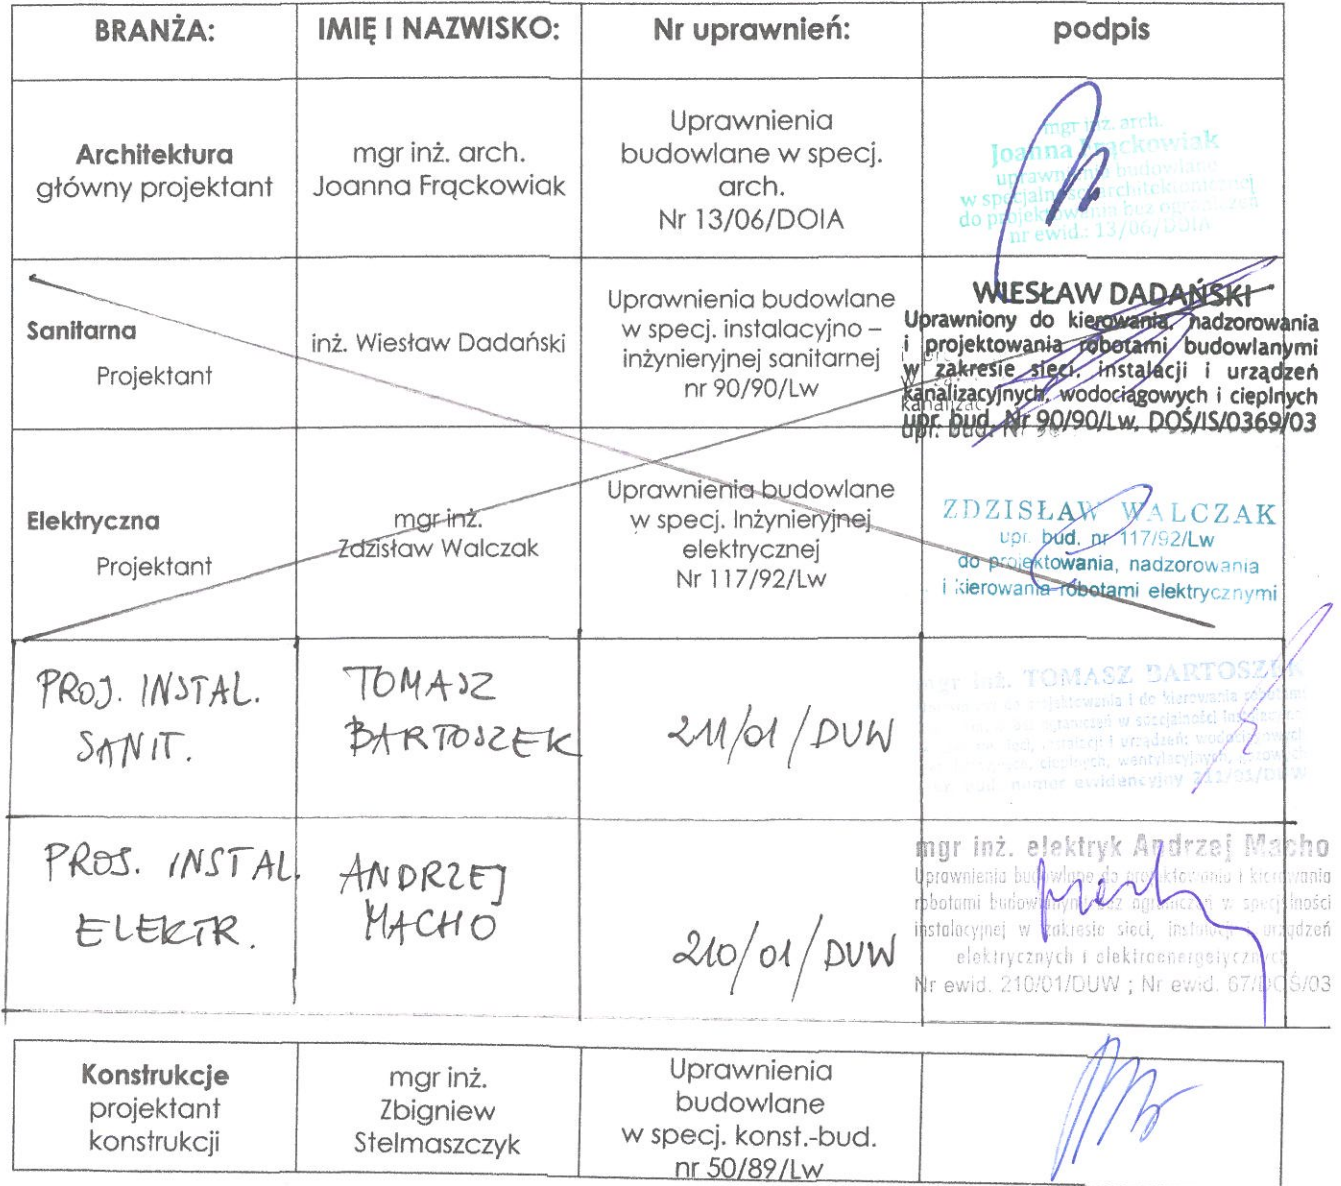 BRANŻA: IMIĘ I NAZWISKO: Nr uprawnień: podpis
Architektura
główny projektant
mgr inż. arch.
Joanna Frąckowiak
Uprawnienia
budowlane w specj.
arch.
Nr 13/06/DOIA
mgr inż. arch.
Joanna Frąckowiak
uprawnienia budowlane
w specjalności architektonicznej
do projektowania bez ograniczeń
nr ewid.: 13/06/DOIA
Sanitarna
Projektant
inż. Wiesław Dadański
Uprawnienia budowlane
w specj. instalacyjno –
inżynieryjnej sanitarnej
nr 90/90/Lw
WIESŁAW DADAŃSKI
Uprawniony do kierowania, nadzorowania
i projektowania robotami budowlanymi
w zakresie sieci, instalacji i urządzeń
kanalizacyjnych, wodociągowych i cieplnych
upr. bud. Nr 90/90/Lw, DOŚ/IS/0369/03
Elektryczna
Projektant
mgr inż.
Zdzisław Walczak
Uprawnienia budowlane
w specj. Inżynieryjnej
elektrycznej
Nr 117/92/Lw
ZDZISŁAW WALCZAK
upr. bud. nr 117/92/Lw
do projektowania, nadzorowania
i kierowania robotami elektrycznymi
PROJ. INSTAL.
SANIT.
TOMASZ
BARTOSZEK
211/01/DUW
mgr inż. TOMASZ BARTOSZEK
do projektowania i do kierowania robotami
bez ograniczeń w specjalności
sieci, instalacji i urządzeń: wodociągowych
cieplnych, wentylacyjnych, gazowych
numer ewidencyjny 211/01/DUW
PROJ. INSTAL.
ELEKTR.
ANDRZEJ
MACHO
210/01/DUW
mgr inż. elektryk Andrzej Macho
Uprawnienia budowlane do projektowania i kierowania
robotami budowlanymi bez ograniczeń w specjalności
instalacyjnej w zakresie sieci, instalacji i urządzeń
elektrycznych i elektroenergetycznych
Nr ewid. 210/01/DUW ; Nr ewid. 67/DOŚ/03
Konstrukcje
projektant
konstrukcji
mgr inż.
Zbigniew
Stelmaszczyk
Uprawnienia
budowlane
w specj. konst.-bud.
nr 50/89/Lw